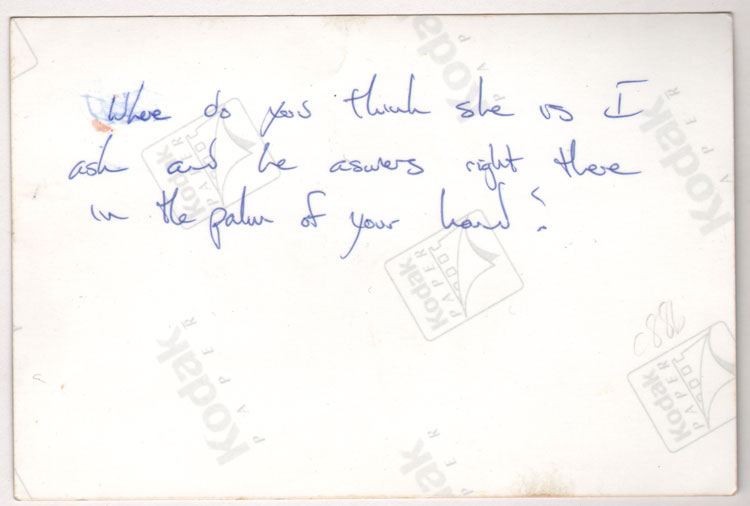 Where do you think she is I
ask and he aswers right there
in the palm of your hand?
c882
Kodak
PAPER
Kodak
PAPER
Kodak
PAPER
Kodak
PAPER
Kodak
PAPER
Kodak
PAPER
Kodak
PAPER